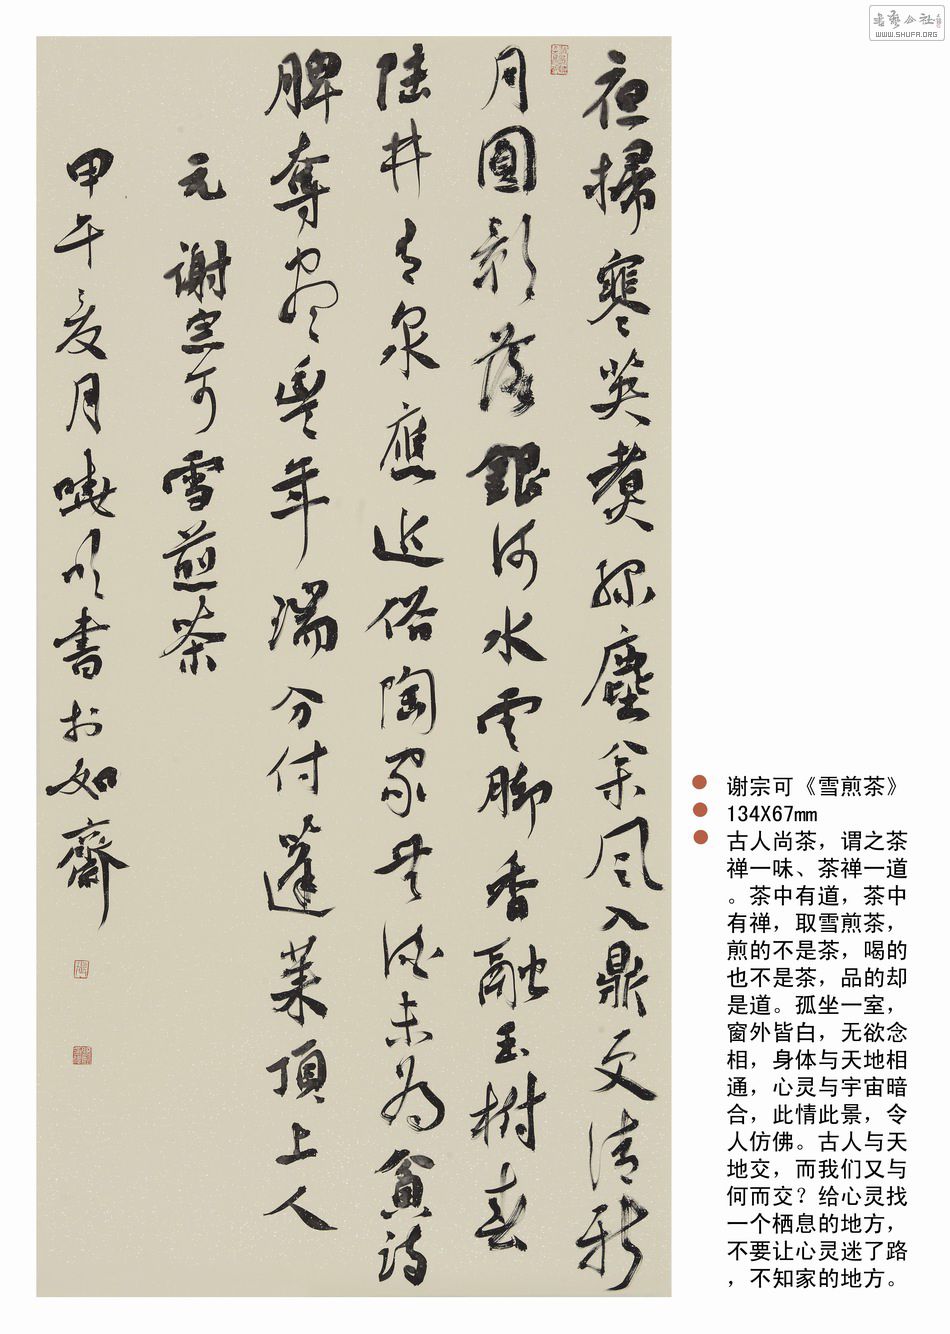 夜掃寒英煮綠塵松風入鼎更清新
月圓影落銀河水雲腳香融玉樹春
陸井有泉應近俗陶家無酒未為貧詩
脾奪盡豐年瑞分付蓬萊頂上人
元謝宗可雪煎茶
甲午夏月曉書於如齋
书艺公社
WWW.SHUFA.ORG
谢宗可《雪煎茶》
134X67mm
古人尚茶，谓之茶
禅一味、茶禅一道
。茶中有道，茶中
有禅，取雪煎茶，
煎的不是茶，喝的
也不是茶，品的却
是道。孤坐一室，
窗外皆白，无欲念
相，身体与天地相
通，心灵与宇宙暗
合，此情此景，令
人仿佛。古人与天
地交，而我们又与
何而交？给心灵找
一个栖息的地方，
不要让心灵迷了路
，不知家的地方。